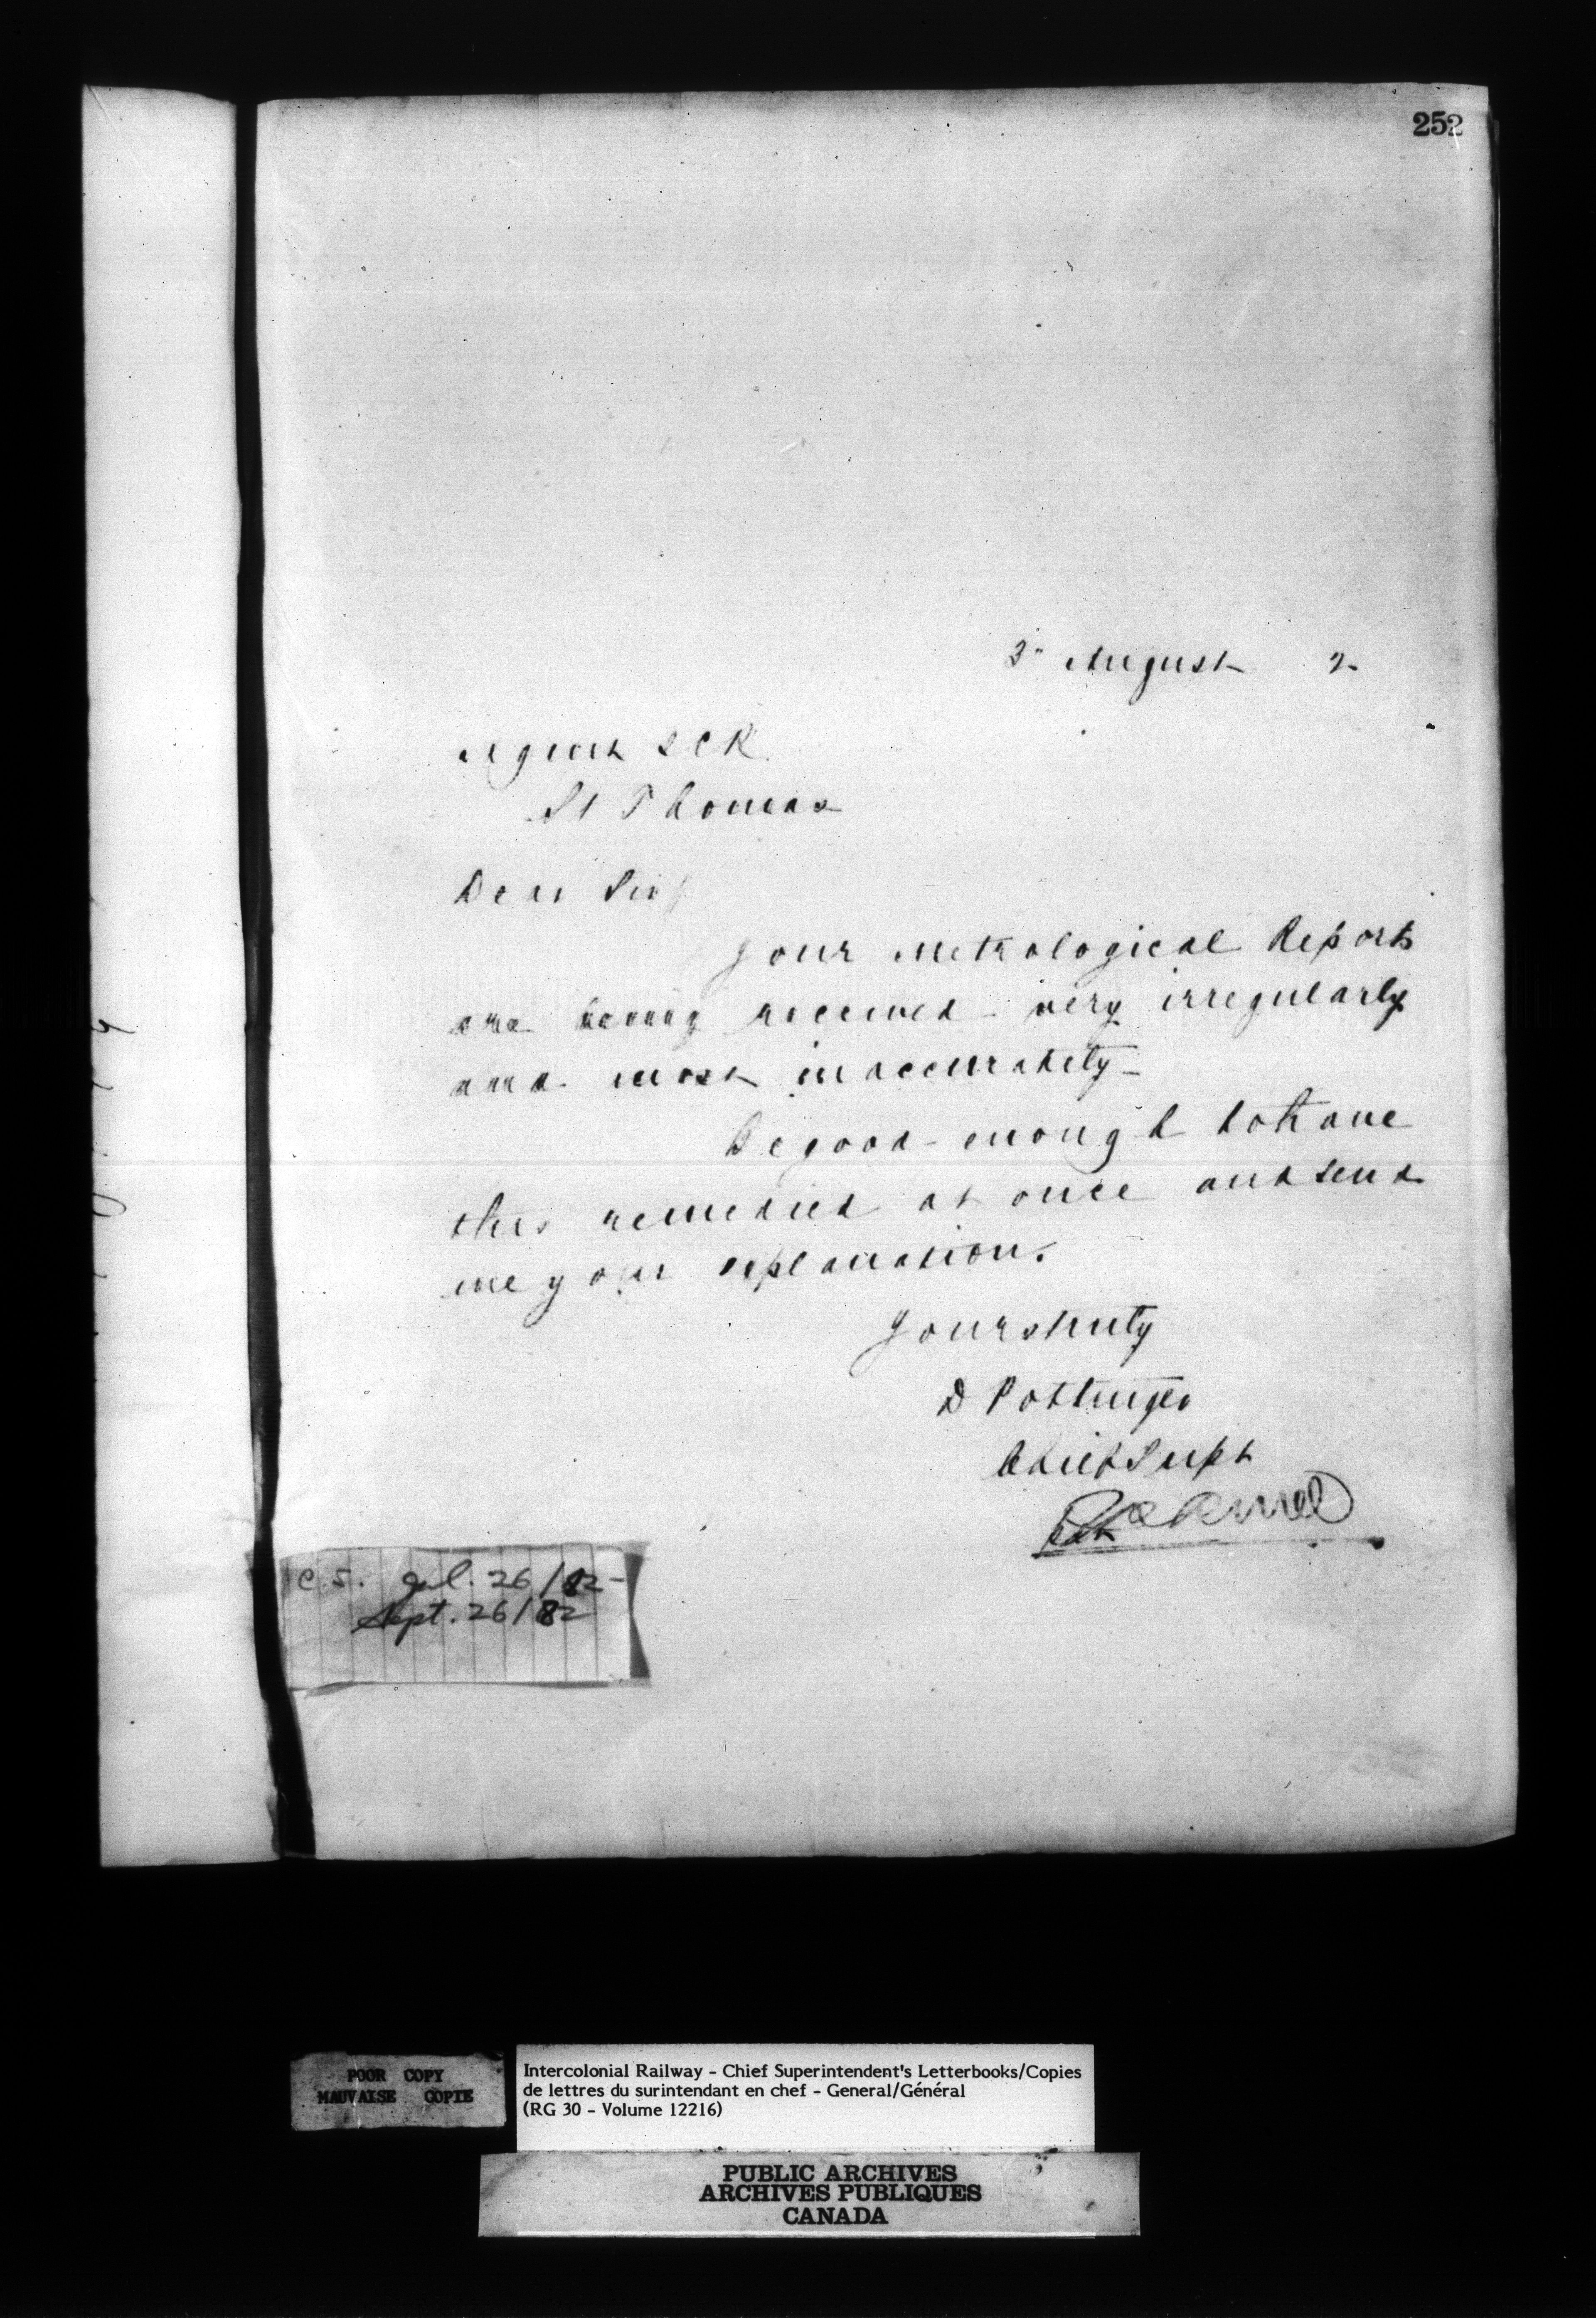 252
3" August 2
Agent ICR
St Thomas
Dear Sir
Your Metrological Reports
are being received very irregularly
and most inaccurately
Be good enough to have
this remedied at once and send
me your explanation.
Yours truly
D Pottinger
Chief Supt
C.S. Jul. 26/82-
Sept. 26/82
POOR COPY
MAUVAISE COPIE
Intercolonial Railway - Chief Superintendent's Letterbooks/Copies
de lettres du surintendant en chef - General/Général
(RG 30 - Volume 12216)
PUBLIC ARCHIVES
ARCHIVES PUBLIQUES
CANADA